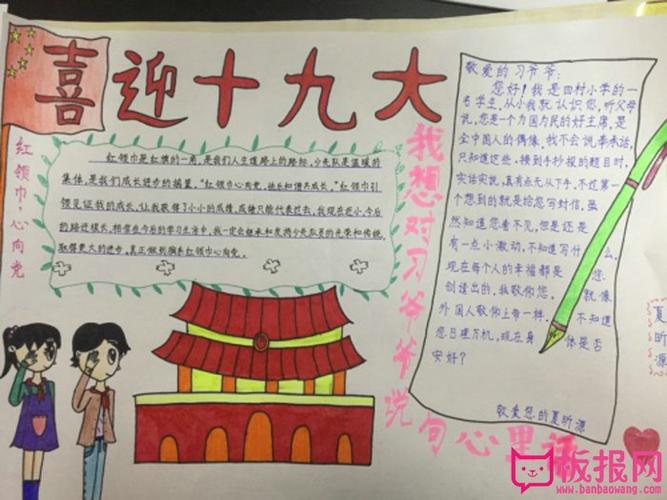 喜迎十九大
红领巾·心向党
红领巾是红旗的一角,是我们人生道路上的路标,少先队是温暖的
集体,是我们成长进步的摇篮,“红领巾心向党,
红领巾引
领见证我的成长,让我取得了小小的成绩,成绩只能代表过去,我现在还小,今后
的路还很长,相信在今后的学习生活中,我一定会继承和发扬少先队员的光荣和传统,
取得更大的进步,真正做到胸系红领巾心向党。
我想对习爷爷说句心里话
敬爱的习爷爷:
您好!我是田村小学的一
名学生,从小我就认识您,听父母
说,您是一个为国为民的好主席,是
全中国人的偶像,我不会说奉承话,
只知道这些,接到手抄报的题目时,
实话实说,真有点无从下手,不过第一
个想到的就是给您写封信,虽
然知道您看不见,但是还是
有一点小激动,不知道写什么,
现在每个人的幸福都是您
创造出的,我敬你您,就像
外国人敬仰上帝一样,不知道
您日理万机,现在身体是否
安好?
敬爱您的夏昕源
夏
昕
源
板报网
www.banbaowang.com